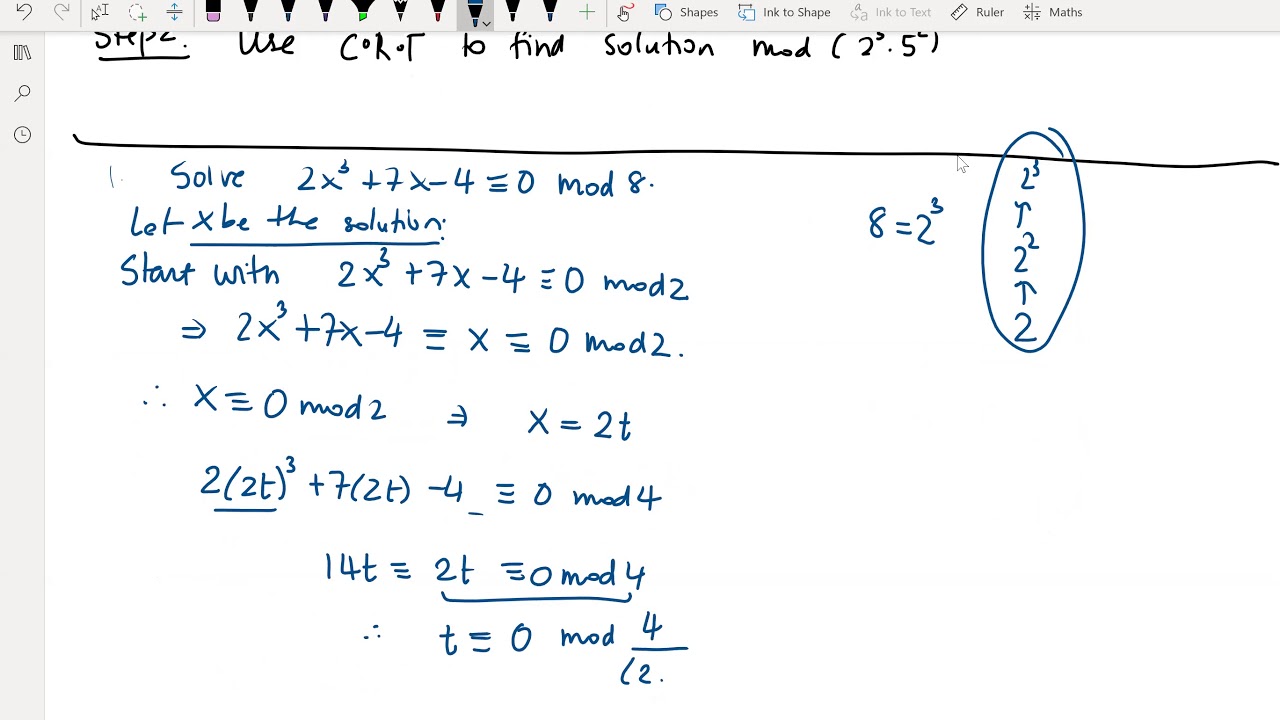 Shapes Ink to Shape Ink to Text Ruler Maths
Step2. Use C.R.T to find solution mod (2³.5²)
1. Solve 2x³ +7x-4 ≡ 0 mod 8.
8 = 2³
2³
↑
2²
↑
2
Let x be the solution:
Start with 2x³ +7x -4 ≡ 0 mod2
⇒ 2x³ +7x-4 ≡ x ≡ 0 mod2.
∴ x ≡ 0 mod2 ⇒ x = 2t
2(2t)³ +7(2t) -4 ≡ 0 mod4
14t ≡ 2t ≡ 0 mod4
∴ t ≡ 0 mod 4
(2.